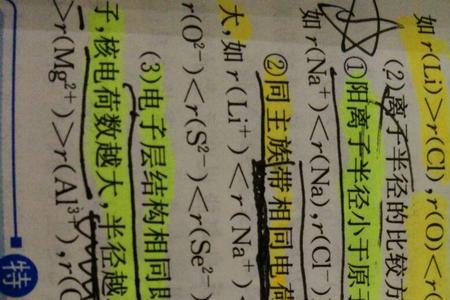 如 r(Li)>r(Cl),r(O)<
(2)离子半径的比较方
①阳离子半径小于原子
如 r(Na⁺)<r(Na),r(Cl⁻)
②同主族带相同电荷
大,如 r(Li⁺)<r(Na⁺)<
r(O²⁻)<r(S²⁻)<r(Se²⁻)
(3)电子层结构相同
子,核电荷数越大,半径越
>r(Mg²⁺)>r(Al³⁺),r(
特